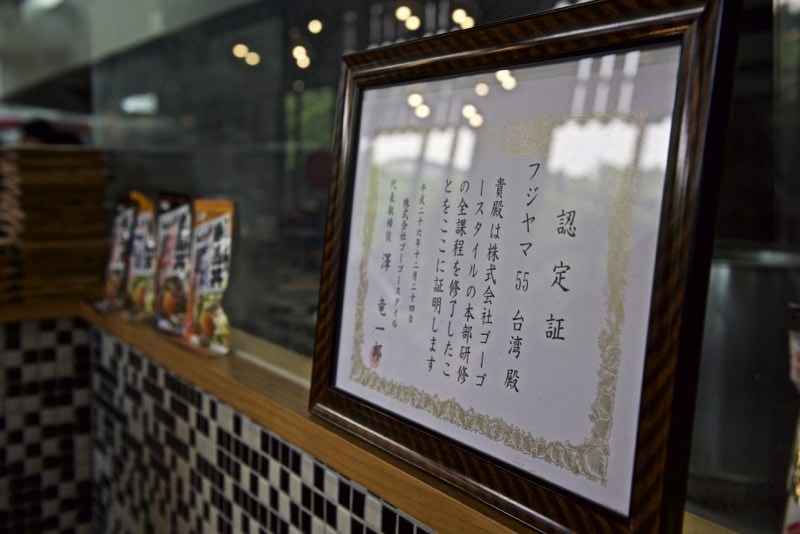 認定証
フジヤマ55 台湾殿
貴殿は株式会社ゴーゴ
ースタイルの本部研修
の全課程を修了したこ
とをここに証明します
平成二十六年十二月二十四日
株式会社ゴーゴースタイル
代表取締役 澤 竜一郎